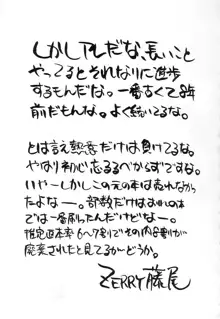 しかしアレだな、長いこと
やってるとそれなりに進歩
するもんだな。一番古くて8年
前だもんな。よく続いてるな。
とは言え熱意だけは負けてるな。
やはり初心忘るべからずですな。
いやーしかしこの元の本は売れなかっ
たよなー。部数だけはおれの本
では一番刷ったんだけどなー。
推定返本率6〜7割でその内8割が
廃棄されたと見てるがどうか。
ZERRY藤尾